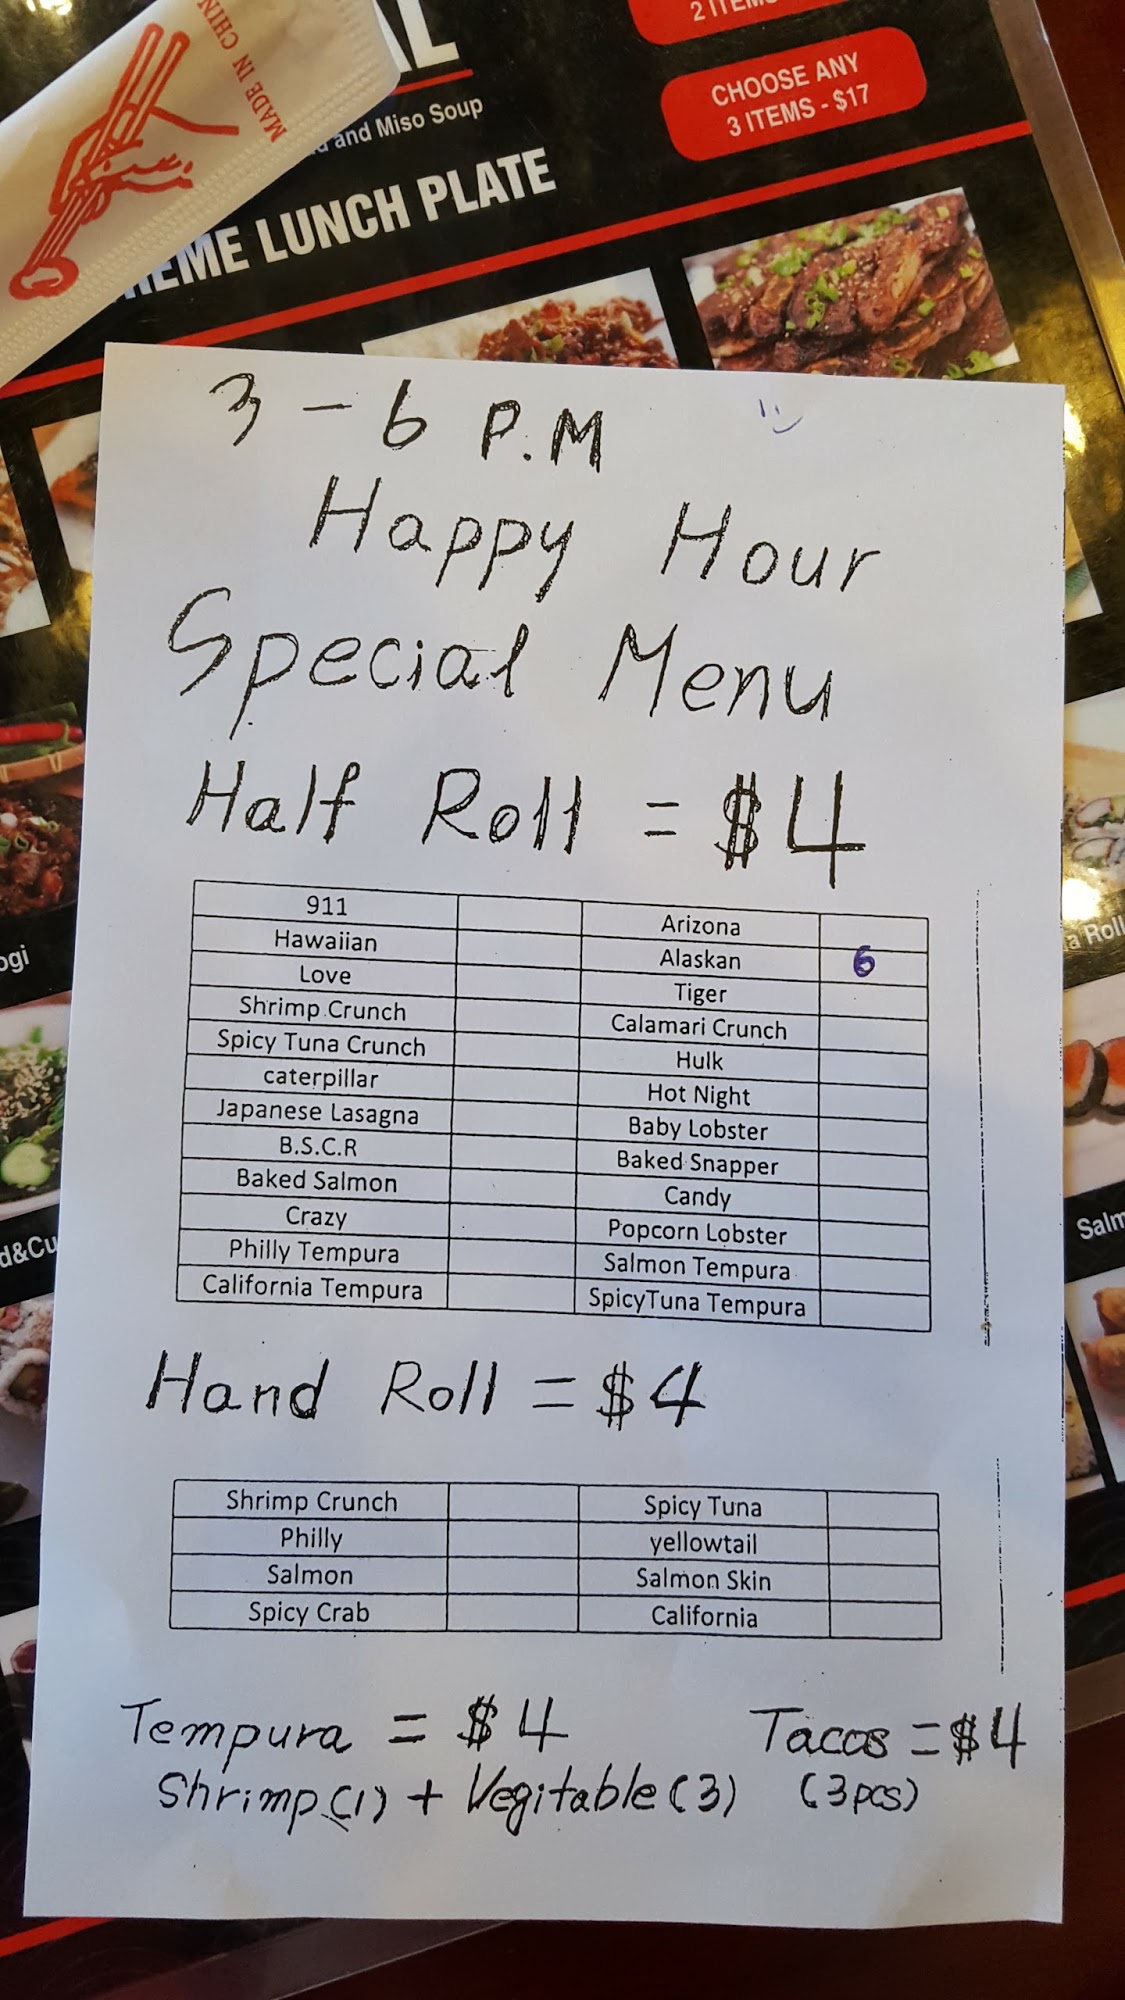 MADE IN CHIN
AL
2 ITEMS
CHOOSE ANY
3 ITEMS - $17
and Miso Soup
EME LUNCH PLATE
3 - 6 P.M
Happy Hour
Special Menu
Half Roll = $4
911 Arizona
Hawaiian Alaskan 6
Love Tiger
Shrimp Crunch Calamari Crunch
Spicy Tuna Crunch Hulk
caterpillar Hot Night
Japanese Lasagna Baby Lobster
B.S.C.R Baked Snapper
Baked Salmon Candy
Crazy Popcorn Lobster
Philly Tempura Salmon Tempura
California Tempura SpicyTuna Tempura
Hand Roll = $4
Shrimp Crunch Spicy Tuna
Philly yellowtail
Salmon Salmon Skin
Spicy Crab California
Tempura = $4 Tacos = $4
Shrimp (1) + Vegitable (3) (3pcs)
ogi
d&Cu
a Roll
Salm